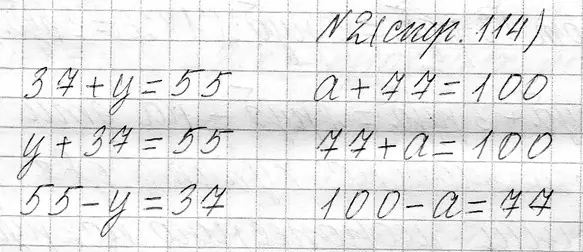 N2(стр. 114)
37+y=55 a+77=100
y+37=55 77+a=100
55-y=37 100-a=77